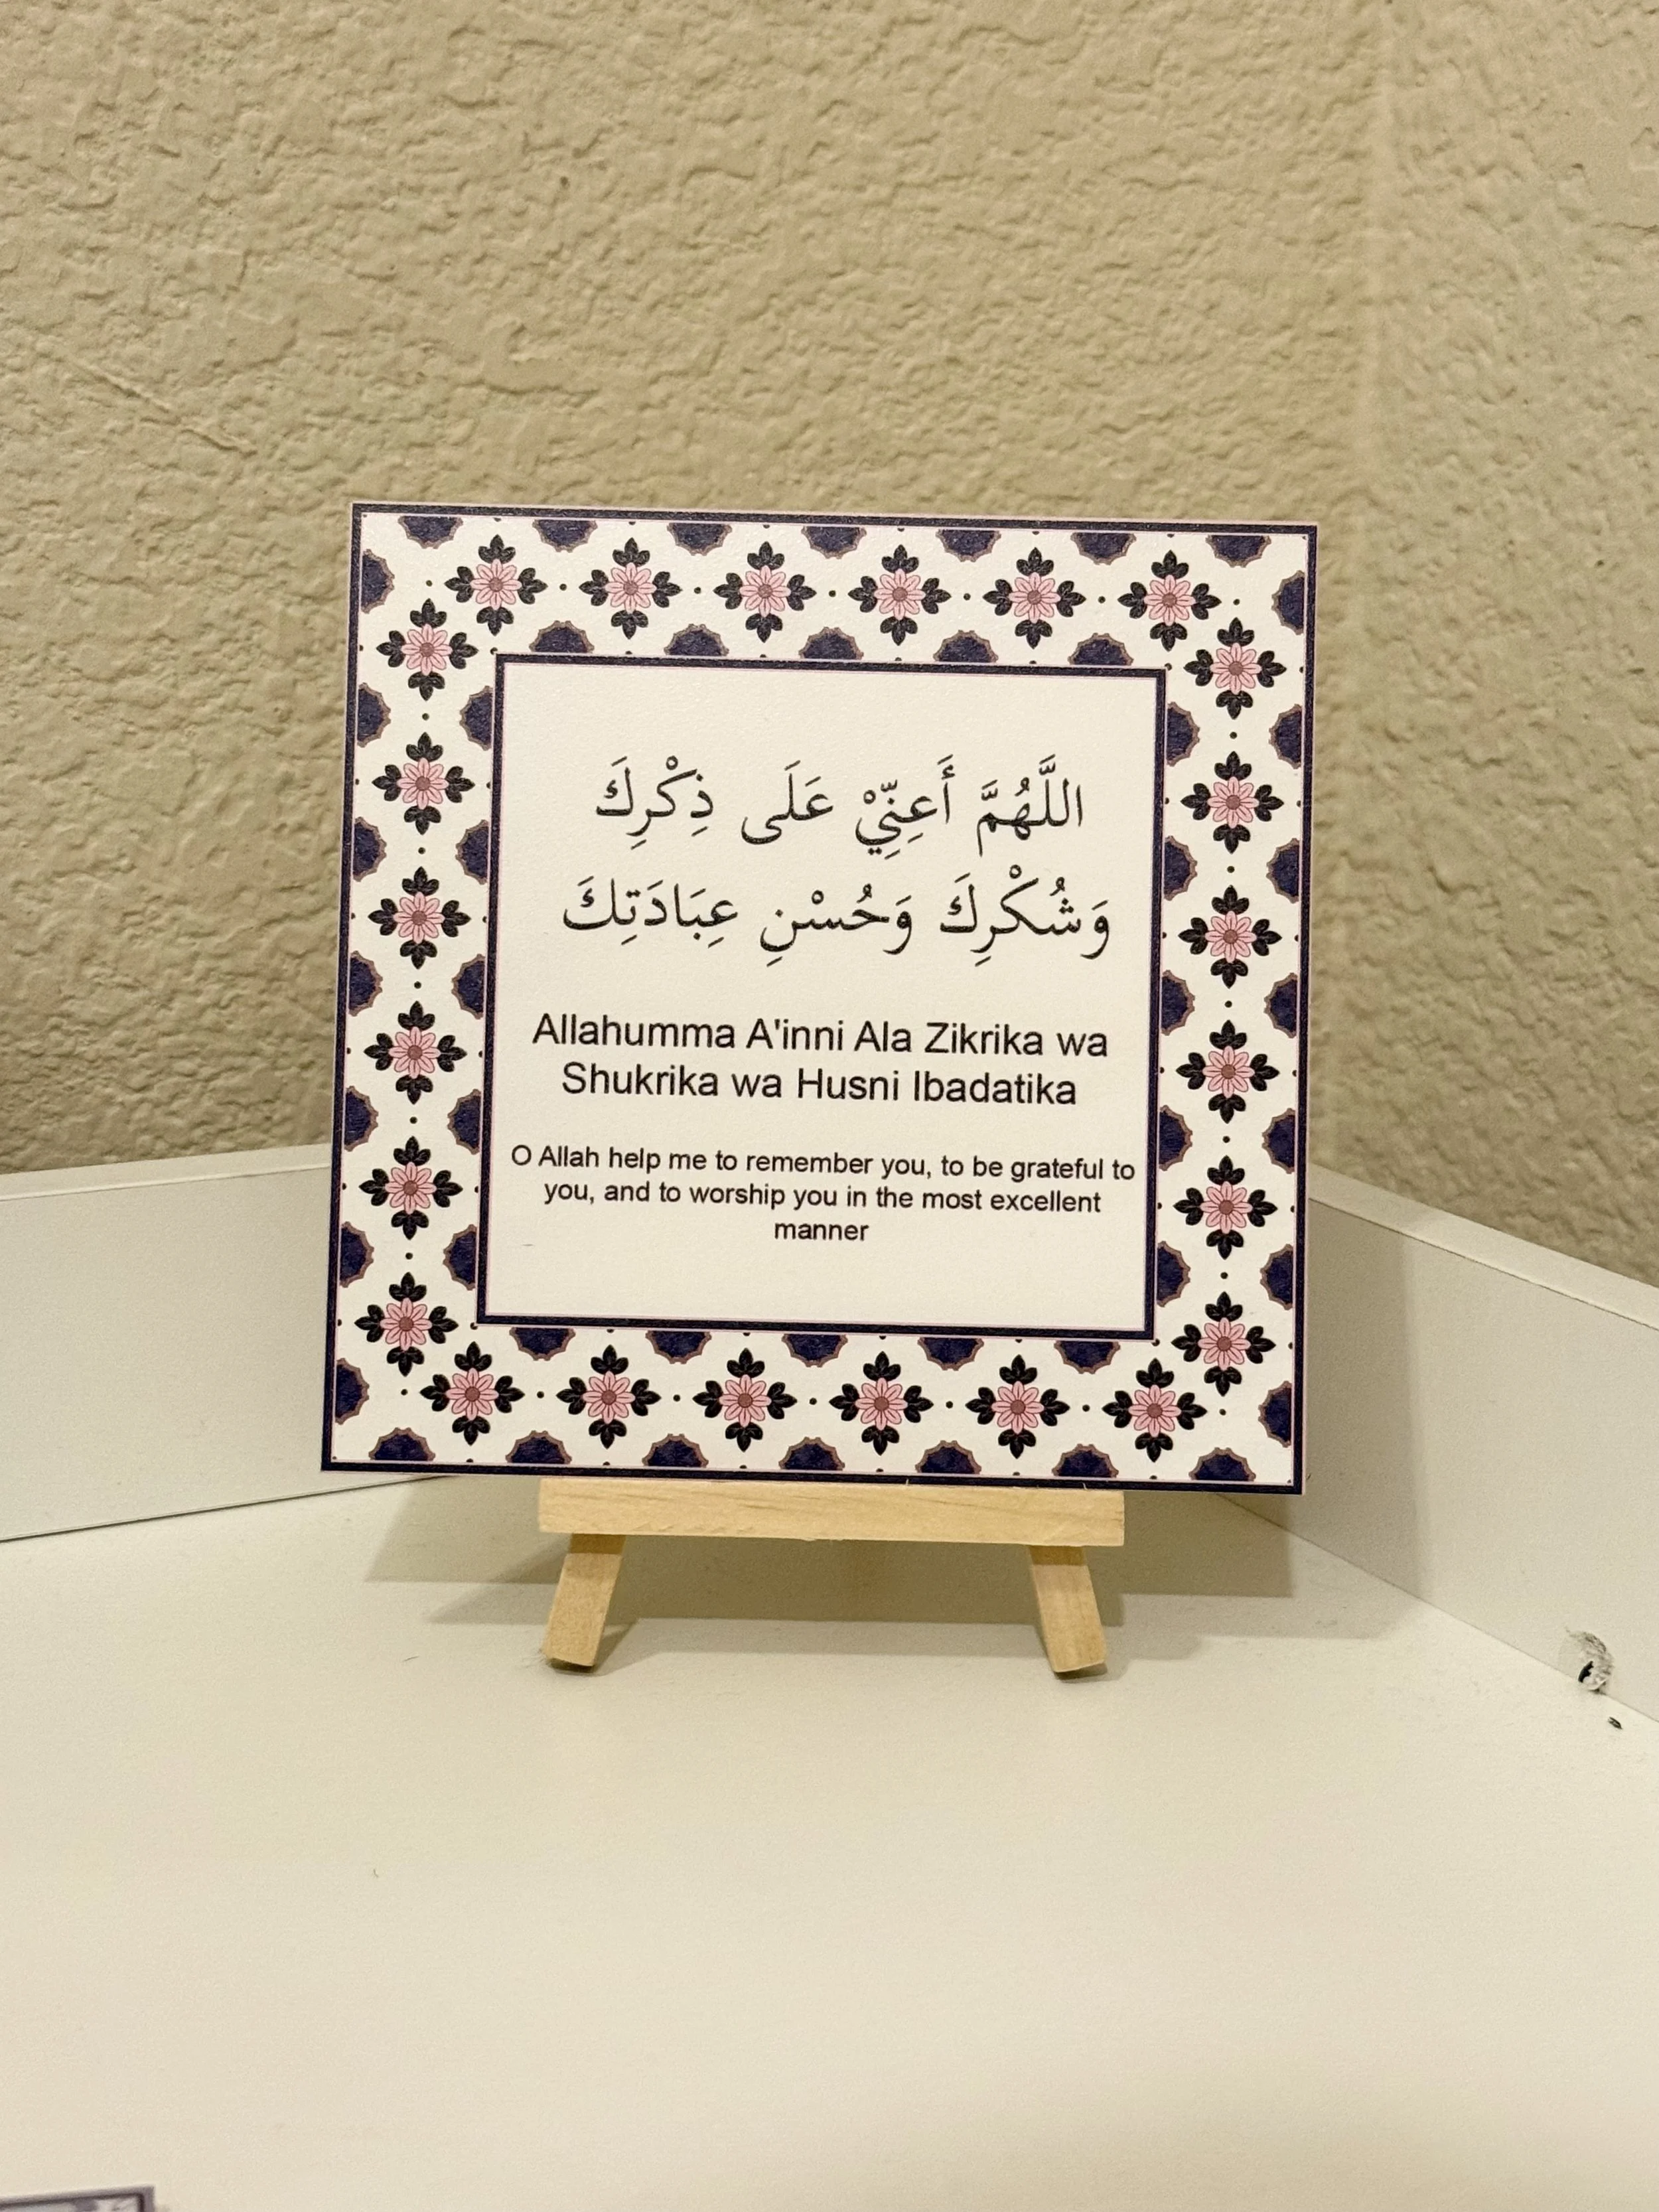 اللَّهُمَّ أَعِنِّيْ عَلَى ذِكْرِكَ
وَشُكْرِكَ وَحُسْنِ عِبَادَتِكَ
Allahumma A'inni Ala Zikrika wa
Shukrika wa Husni Ibadatika
O Allah help me to remember you, to be grateful to
you, and to worship you in the most excellent
manner